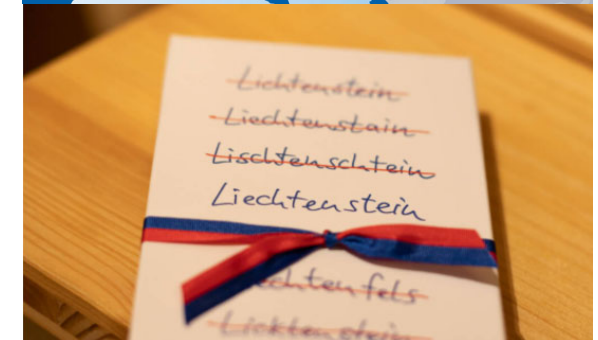 Lichtenstein
Liechtenstain
Lischtenschtein
Liechtenstein
chtenfels
Licktenstein